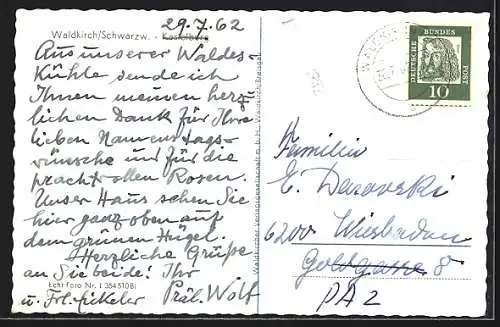 29.7.62
Waldkirch/Schwarzw. - Kastelberg
Aus unserer Waldes-
Kühle sende ich
Ihnen meinen herz-
lichen Dank für Ihre
lieben Namenstags-
wünsche und für die
prachtvollen Rosen.
Unser Haus sehen Sie
hier ganz oben auf
dem grünen Hügel.
Herzliche Grüße
an Sie beide! Ihr
Echt Foto Nr. L 3545108i
u. Frl. Eickeler Präl. Wolf
DEUTSCHE
BUNDES
POST
10
Familie
E. Dasovski
6200 Wiesbaden
Goldgasse 8
PA 2